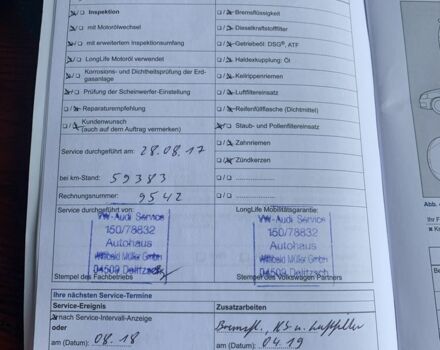 Inspektion
Bremsflüssigkeit
mit Motorölwechsel
Dieselkraftstofffilter
mit erweitertem Inspektionsumfang
Getriebeöl: DSG®, ATF
LongLife Motoröl verwendet
Haldexkupplung: Öl
Korrosions- und Dichtheitsprüfung der Erd-
gasanlage
Keilrippenriemen
Prüfung der Scheinwerfer-Einstellung
Luftfiltereinsatz
Reparaturempfehlung
Reifenfüllflasche (Dichtmittel)
Kundenwunsch
(auch auf dem Auftrag vermerken)
Staub- und Pollenfiltereinsatz
Service durchgeführt am: 28.08.17
Zahnriemen
Zündkerzen
bei km-Stand: 59383
Rechnungsnummer: 9542
Service durchgeführt von:
LongLife Mobilitätsgarantie:
VW-Audi Service
150/78832
Autohaus
Willibald Müller GmbH
04509 Delitzsch
Stempel des Fachbetriebs
VW-Audi Service
150/78832
Autohaus
Willibald Müller GmbH
04509 Delitzsch
Stempel des Volkswagen Partners
Ihre nächsten Service-Termine
Service-Ereignis
Zusatzarbeiten
nach Service-Intervall-Anzeige
oder
am (Datum): 08.18
Bremsfl., u. Luftfilter
am (Datum): 04.19
Abb.